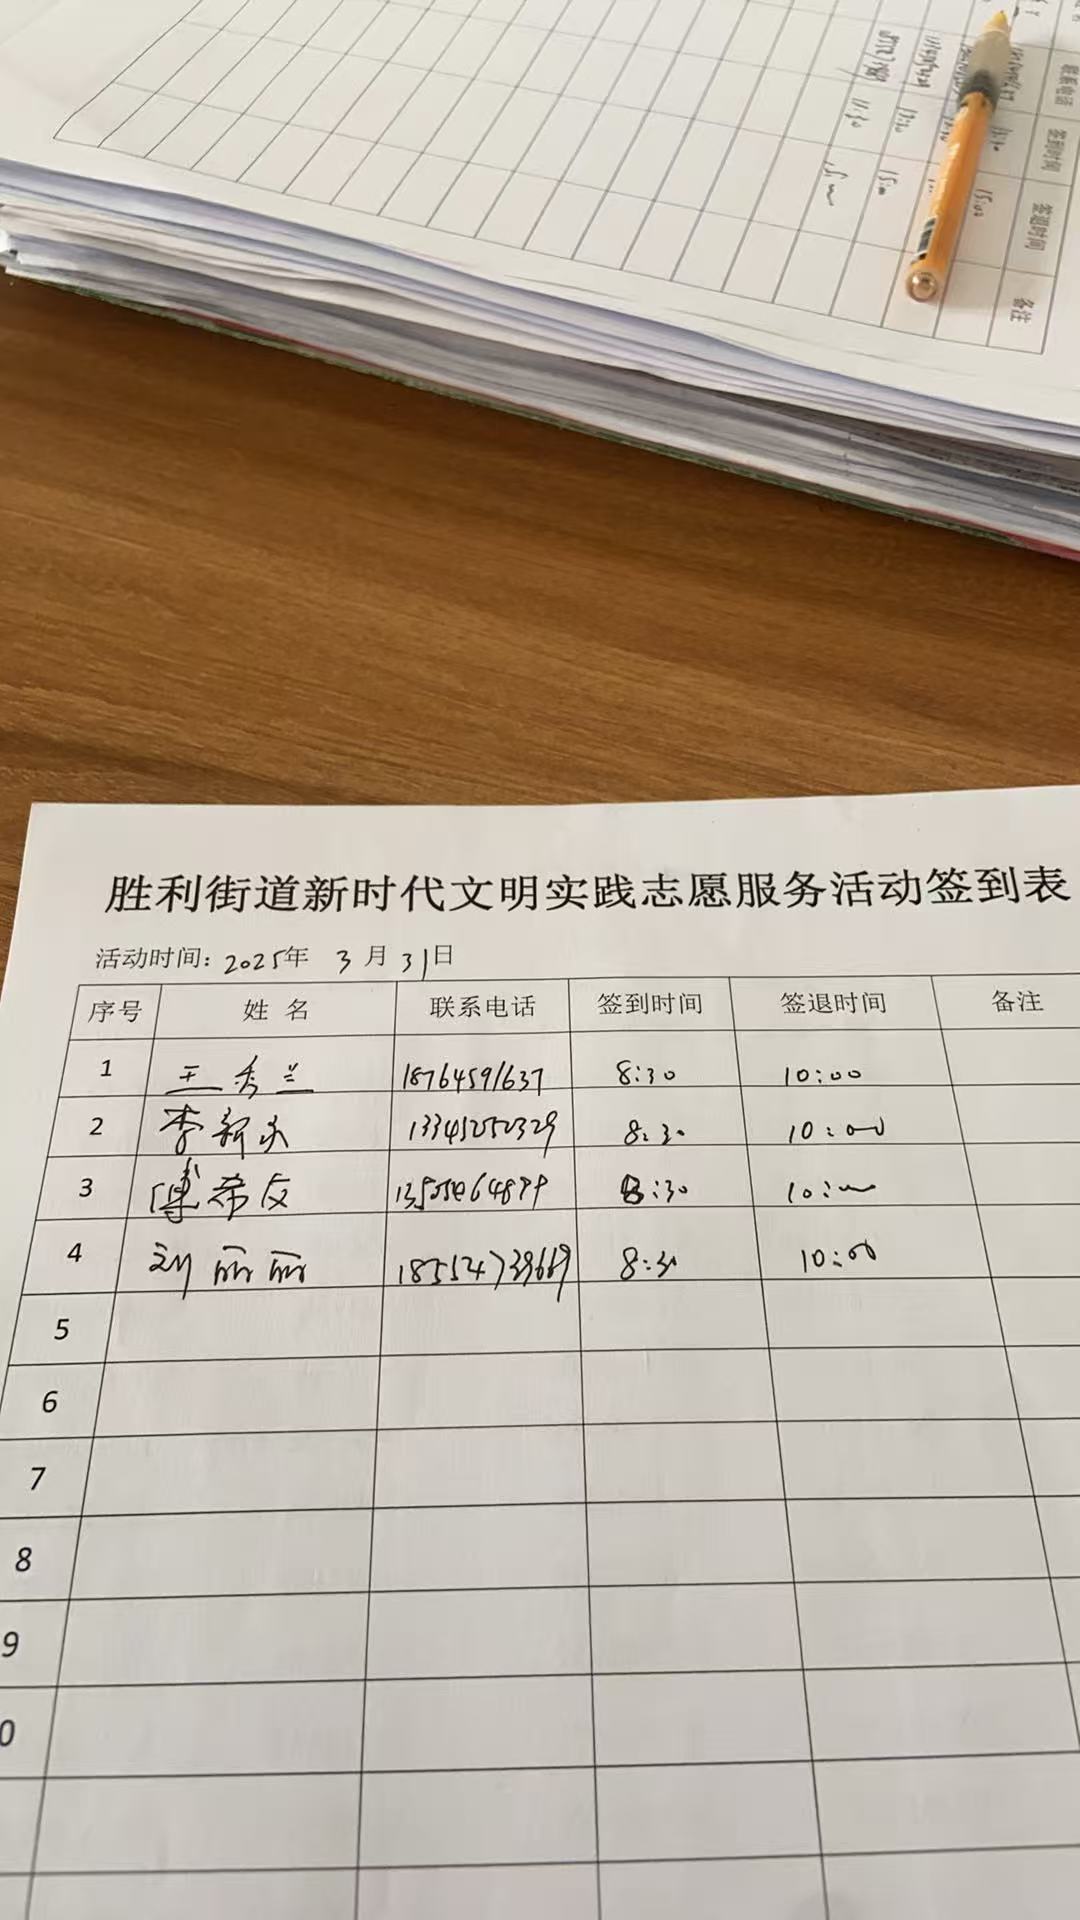 联系电话 签到时间 签退时间 备注
15:00
胜利街道新时代文明实践志愿服务活动签到表
活动时间：2025年 3月31日
序号 姓名 联系电话 签到时间 签退时间 备注
1 王秀兰 18764591637 8:30 10:00
2 李新 13345252329 8:30 10:00
3 傅希友 8:30 10:00
4 刘丽丽 18554739669 8:30 10:00
5
6
7
8
9
0